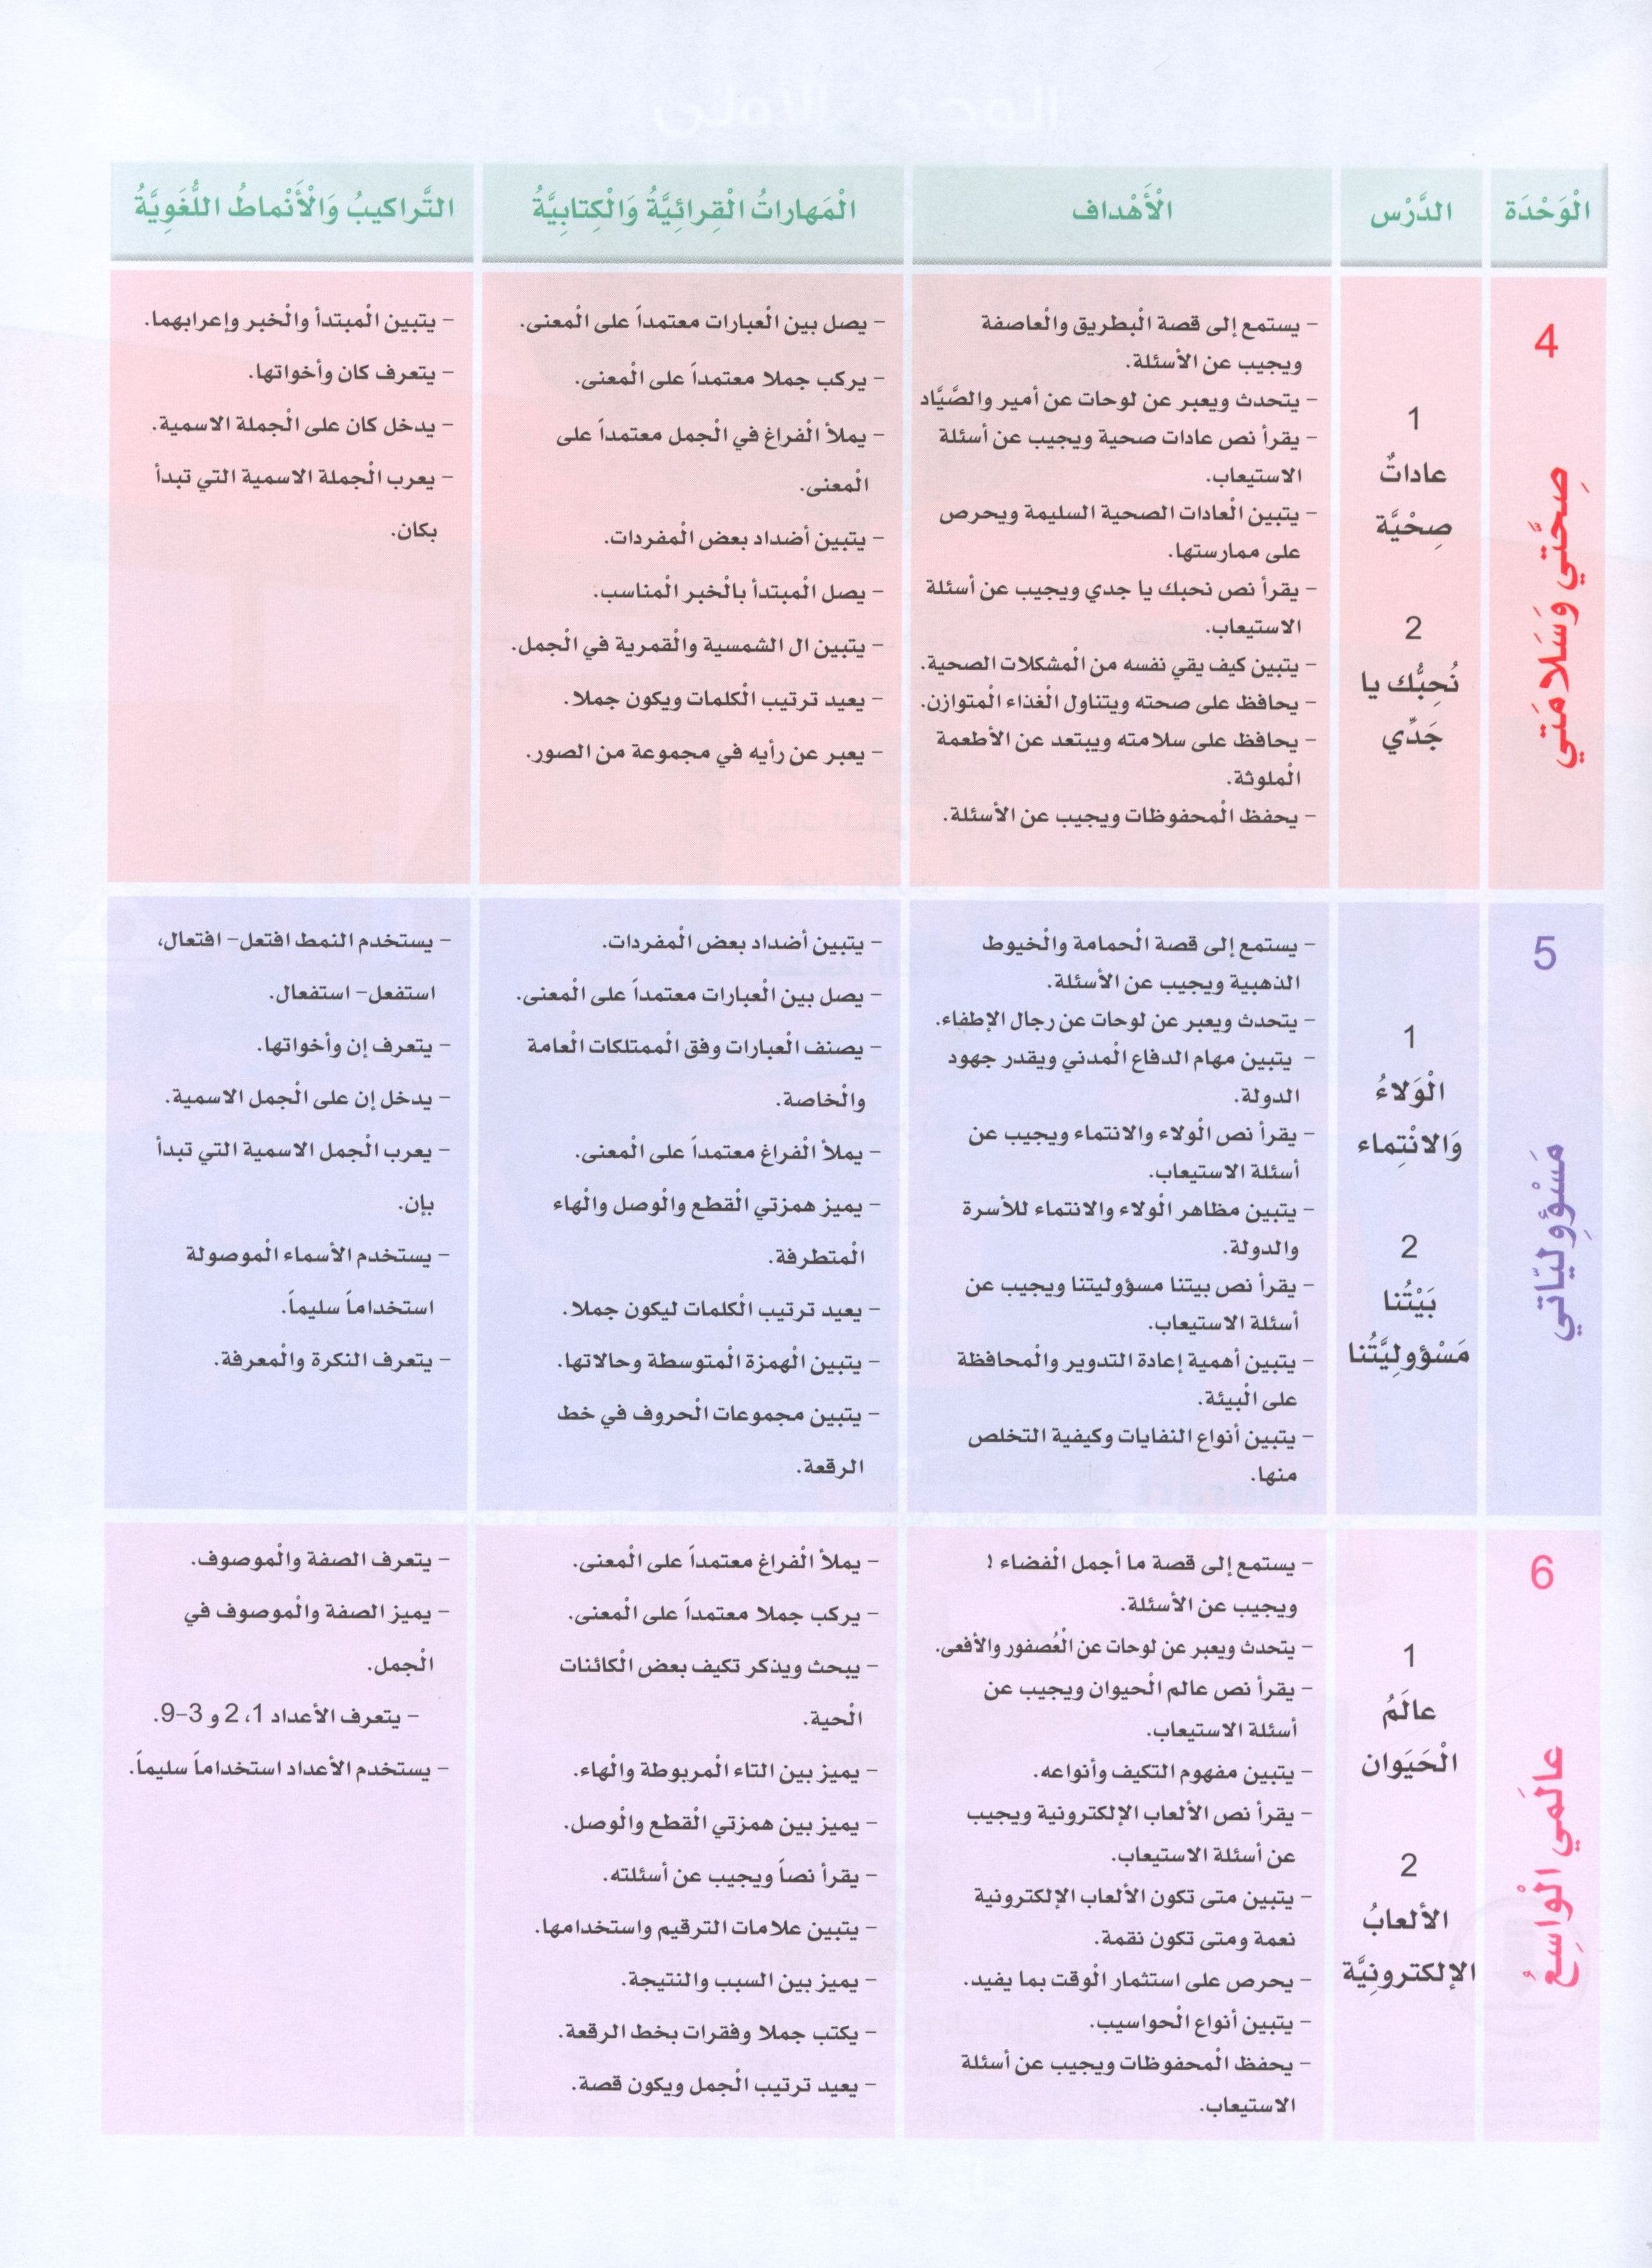 الْوَحْدَة
الدَّرْس
الْأَهْداف
الْمَهاراتُ الْقِرائِيَّةُ وَالْكِتابِيَّةُ
التَّراكيبُ وَالْأَنْماطُ اللُّغَوِيَّةُ
4
صِحَّتي وَسَلامَتي
1
عاداتٌ
صِحْيَّة
2
نُحِبُّك يا
جَدِّي
- يستمع إلى قصة الْبطريق والْعاصفة
ويجيب عن الأسئلة.
- يتحدث ويعبر عن لوحات عن أمير والصَّيَّاد
- يقرأ نص عادات صحية ويجيب عن أسئلة
الاستيعاب.
- يتبين الْعادات الصحية السليمة ويحرص
على ممارستها.
- يقرأ نص نحبك يا جدي ويجيب عن أسئلة
الاستيعاب.
- يتبين كيف يقي نفسه من الْمشكلات الصحية.
- يحافظ على صحته ويتناول الْغذاء الْمتوازن.
- يحافظ على سلامته ويبتعد عن الأطعمة
الْملوثة.
- يحفظ الْمحفوظات ويجيب عن الأسئلة.
- يصل بين الْعبارات معتمداً على الْمعنى.
- يركب جملا معتمداً على الْمعنى.
- يملأ الْفراغ في الْجمل معتمداً على
الْمعنى.
- يتبين أضداد بعض الْمفردات.
- يصل الْمبتدأ بالْخبر الْمناسب.
- يتبين ال الشمسية والْقمرية في الْجمل.
- يعيد ترتيب الْكلمات ويكون جملا.
- يعبر عن رأيه في مجموعة من الصور.
- يتبين الْمبتدأ والْخبر وإعرابهما.
- يتعرف كان وأخواتها.
- يدخل كان على الْجملة الاسمية.
- يعرب الْجملة الاسمية التي تبدأ
بكان.
5
مَسْؤوليّاتي
1
الْوَلاءُ
وَالانْتِماء
2
بَيْتُنا
مَسْؤولِيَّتُنا
- يستمع إلى قصة الْحمامة والْخيوط
الذهبية ويجيب عن الأسئلة.
- يتحدث ويعبر عن لوحات عن رجال الإطفاء.
- يتبين مهام الدفاع الْمدني ويقدر جهود
الدولة.
- يقرأ نص الْولاء والانتماء ويجيب عن
أسئلة الاستيعاب.
- يتبين مظاهر الْولاء والانتماء للأسرة
والدولة.
- يقرأ نص بيتنا مسؤوليتنا ويجيب عن
أسئلة الاستيعاب.
- يتبين أهمية إعادة التدوير والْمحافظة
على الْبيئة.
- يتبين أنواع النفايات وكيفية التخلص
منها.
- يتبين أضداد بعض الْمفردات.
- يصل بين الْعبارات معتمداً على الْمعنى.
- يصنف الْعبارات وفق الْممتلكات الْعامة
والْخاصة.
- يملأ الْفراغ معتمداً على الْمعنى.
- يميز همزتي الْقطع والْوصل والْهاء
الْمتطرفة.
- يعيد ترتيب الْكلمات ليكون جملا.
- يتبين الْهمزة الْمتوسطة وحالاتها.
- يتبين مجموعات الْحروف في خط
الرقعة.
- يستخدم النمط افتعل- افتعال،
استفعل- استفعال.
- يتعرف إن وأخواتها.
- يدخل إن على الْجمل الاسمية.
- يعرب الْجمل الاسمية التي تبدأ
بإن.
- يستخدم الأسماء الْموصولة
استخداماً سليماً.
- يتعرف النكرة والْمعرفة.
6
عالَمي الْواسِعُ
1
عالَمُ
الْحَيَوان
2
الألعابُ
الإلكترونِيَّة
- يستمع إلى قصة ما أجمل الْفضاء !
ويجيب عن الأسئلة.
- يتحدث ويعبر عن لوحات عن الْعُصفور والأفعى.
- يقرأ نص عالم الْحيوان ويجيب عن
أسئلة الاستيعاب.
- يتبين مفهوم التكيف وأنواعه.
- يقرأ نص الألعاب الإلكترونية ويجيب
عن أسئلة الاستيعاب.
- يتبين متى تكون الألعاب الإلكترونية
نعمة ومتى تكون نقمة.
- يحرص على استثمار الْوقت بما يفيد.
- يتبين أنواع الْحواسيب.
- يحفظ الْمحفوظات ويجيب عن أسئلة
الاستيعاب.
- يملأ الْفراغ معتمداً على الْمعنى.
- يركب جملا معتمداً على الْمعنى.
- يبحث ويذكر تكيف بعض الْكائنات
الْحية.
- يميز بين التاء الْمربوطة والْهاء.
- يميز بين همزتي الْقطع والْوصل.
- يقرأ نصاً ويجيب عن أسئلته.
- يتبين علامات الترقيم واستخدامها.
- يميز بين السبب والنتيجة.
- يكتب جملا وفقرات بخط الرقعة.
- يعيد ترتيب الْجمل ويكون قصة.
- يتعرف الصفة والْموصوف.
- يميز الصفة والْموصوف في
الْجمل.
- يتعرف الأعداد 1، 2 و 3-9.
- يستخدم الأعداد استخداماً سليماً.